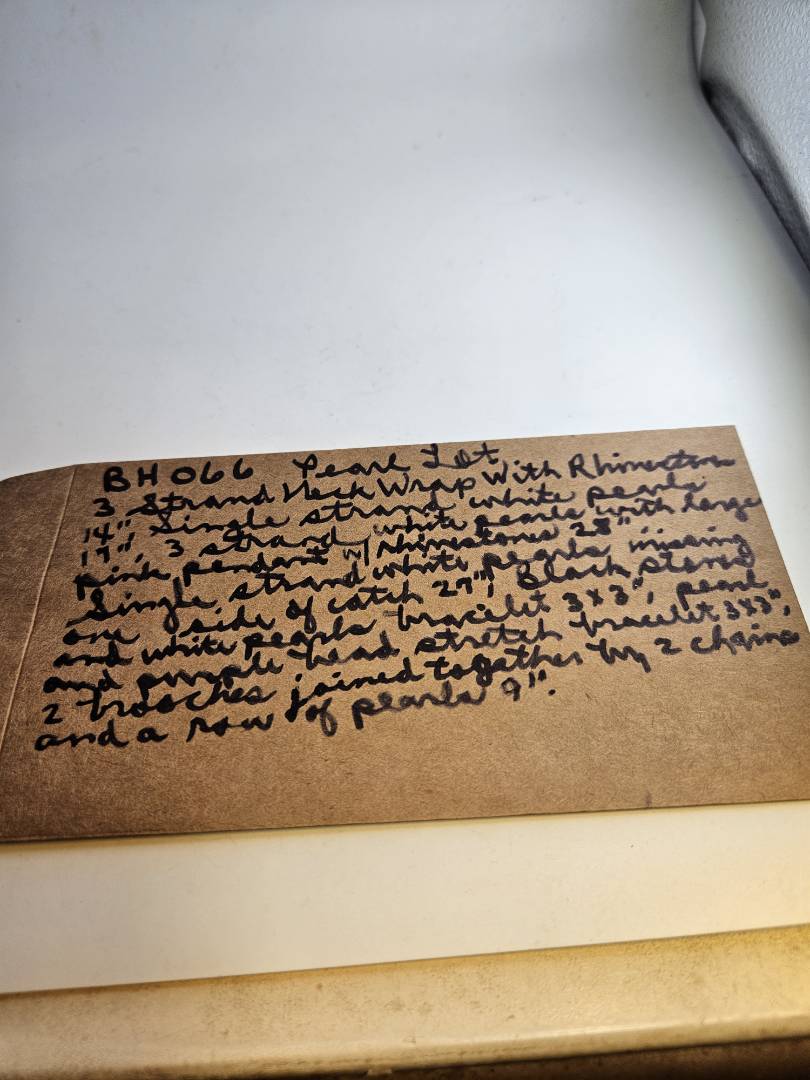 BH066 Pearl Lot
3 Strand Neck Wrap With Rhinestones
14", Single strand white pearls
17", 3 strand white pearls with large
pink pendant w/ rhinestones 28"
Single strand white pearls missing
one side of catch 27", Black stones
and white pearls bracelet 3x3", pearl
and purple bead stretch bracelet 3x3",
2 brooches joined together by 2 chains
and a row of pearls 9".